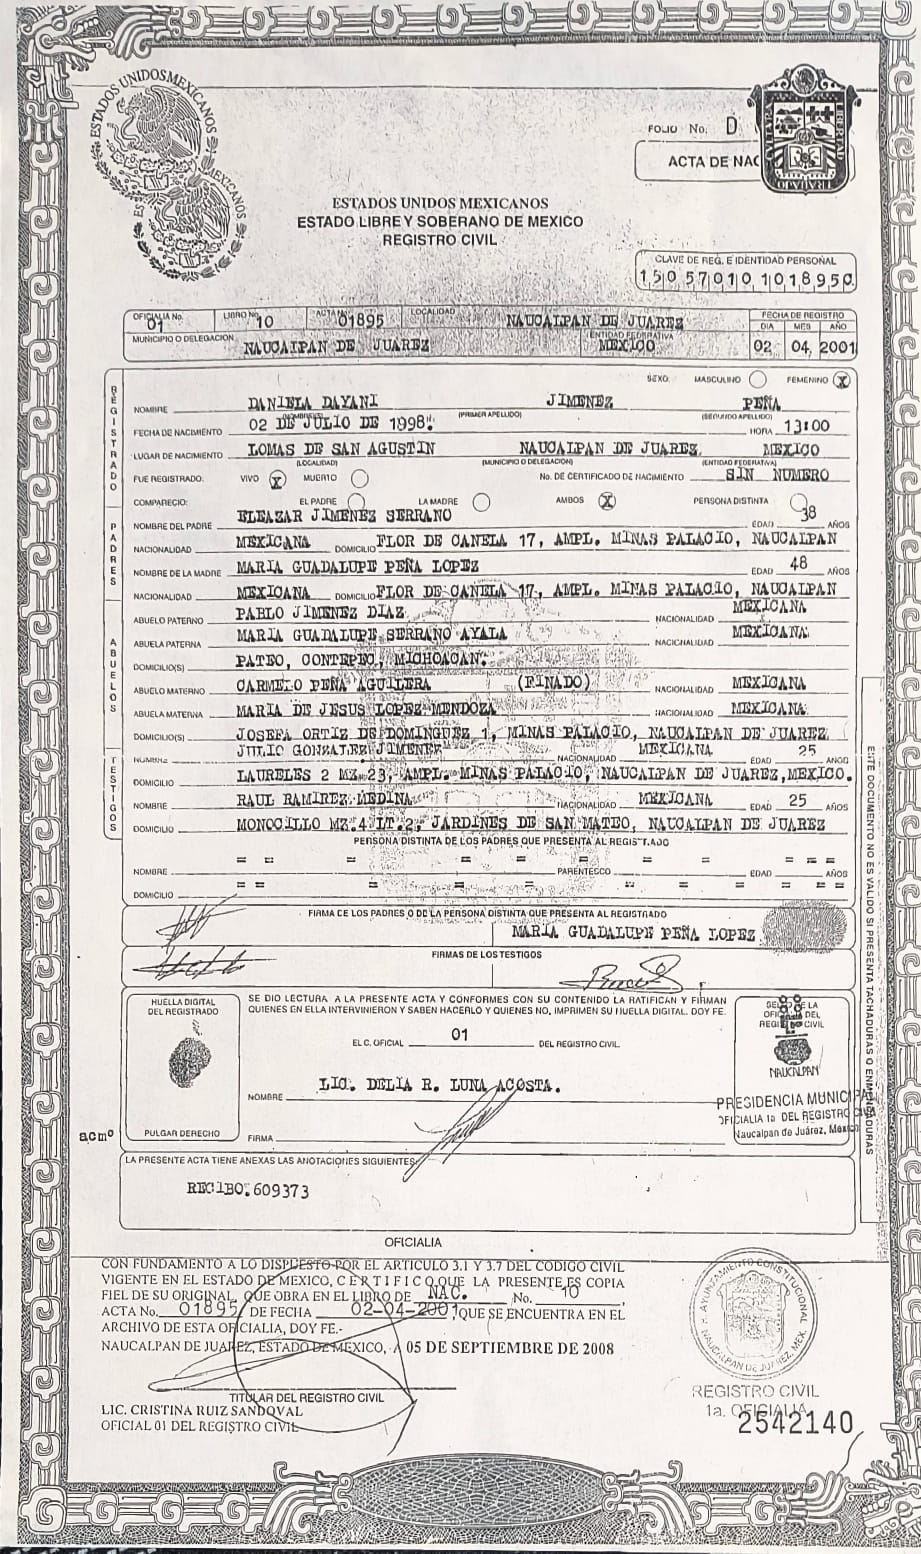 ESTADOS UNIDOS MEXICANOS
FOLIO No. D
ACTA DE NAC
ESTADOS UNIDOS MEXICANOS
ESTADO LIBRE Y SOBERANO DE MEXICO
REGISTRO CIVIL
CLAVE DE REG. E IDENTIDAD PERSONAL
150570101018950
OFICIALIA No. 01 LIBRO No. 10 ACTA No. 01895 LOCALIDAD NAUCALPAN DE JUAREZ FECHA DE REGISTRO
MUNICIPIO O DELEGACION NAUCALPAN DE JUAREZ ENTIDAD FEDERATIVA MEXICO DIA 02 MES 04, AÑO 2001
SEXO: MASCULINO FEMENINO X
REGISTRADO
NOMBRE DANIELA DAYANI JIMENEZ PEÑA
(NOMBRE) (PRIMER APELLIDO) (SEGUNDO APELLIDO)
FECHA DE NACIMIENTO 02 DE JULIO DE 1998. HORA 13:00
LUGAR DE NACIMIENTO LOMAS DE SAN AGUSTIN NAUCALPAN DE JUAREZ MEXICO
(LOCALIDAD) (MUNICIPIO O DELEGACION) (ENTIDAD FEDERATIVA)
FUE REGISTRADO: VIVO X MUERTO No. DE CERTIFICADO DE NACIMIENTO SIN NUMERO
COMPARECIO: EL PADRE LA MADRE AMBOS X PERSONA DISTINTA
PADRES
NOMBRE DEL PADRE ELEAZAR JIMENEZ SERRANO EDAD 38 AÑOS
NACIONALIDAD MEXICANA DOMICILIO FLOR DE CANELA 17, AMPL. MINAS PALACIO, NAUCALPAN
NOMBRE DE LA MADRE MARIA GUADALUPE PEÑA LOPEZ EDAD 48 AÑOS
NACIONALIDAD MEXICANA DOMICILIO FLOR DE CANELA 17, AMPL. MINAS PALACIO, NAUCALPAN
ABUELOS
ABUELO PATERNO PABLO JIMENEZ DIAZ NACIONALIDAD MEXICANA
ABUELA PATERNA MARIA GUADALUPE SERRANO AYALA NACIONALIDAD MEXICANA
DOMICILIO(S) PATEO, CONTEPEC, MICHOACAN.
ABUELO MATERNO CARMELO PEÑA AGUILERA (FINADO) NACIONALIDAD MEXICANA
ABUELA MATERNA MARIA DE JESUS LOPEZ MENDOZA NACIONALIDAD MEXICANA
DOMICILIO(S) JOSEFA ORTIZ DE DOMINGUEZ 1, MINAS PALACIO, NAUCALPAN DE JUAREZ
TESTIGOS
NOMBRE JULIO GONZALEZ JIMENEZ NACIONALIDAD MEXICANA EDAD 25 AÑOS
DOMICILIO LAURELES 2 MZ.23, AMPL. MINAS PALACIO, NAUCALPAN DE JUAREZ, MEXICO.
NOMBRE RAUL RAMIREZ MEDINA NACIONALIDAD MEXICANA EDAD 25 AÑOS
DOMICILIO MONOCILLO MZ.4 LT.2, JARDINES DE SAN MATEO, NAUCALPAN DE JUAREZ
PERSONA DISTINTA DE LOS PADRES QUE PRESENTA AL REGISTRADO
NOMBRE PARENTESCO EDAD AÑOS
DOMICILIO
FIRMA DE LOS PADRES O DE LA PERSONA DISTINTA QUE PRESENTA AL REGISTRADO
MARIA GUADALUPE PEÑA LOPEZ
FIRMAS DE LOS TESTIGOS
HUELLA DIGITAL DEL REGISTRADO
PULGAR DERECHO
SE DIO LECTURA A LA PRESENTE ACTA Y CONFORMES CON SU CONTENIDO LA RATIFICAN Y FIRMAN
QUIENES EN ELLA INTERVINIERON Y SABEN HACERLO Y QUIENES NO, IMPRIMEN SU HUELLA DIGITAL. DOY FE.
EL C. OFICIAL 01 DEL REGISTRO CIVIL
NOMBRE LIC. DELIA R. LUNA ACOSTA.
FIRMA
SELLO DE LA
OFICIALIA DEL
REGISTRO CIVIL
NAUCALPAN
PRESIDENCIA MUNICIPAL
OFICIALIA 1a DEL REGISTRO CIVIL
Naucalpan de Juárez, Mexico
acmº
ESTE DOCUMENTO NO ES VALIDO SI PRESENTA TACHADURAS O ENMENDADURAS
LA PRESENTE ACTA TIENE ANEXAS LAS ANOTACIONES SIGUIENTES:
RECIBO.609373
OFICIALIA
CON FUNDAMENTO A LO DISPUESTO POR EL ARTICULO 3.1 Y 3.7 DEL CODIGO CIVIL
VIGENTE EN EL ESTADO DE MEXICO, C E R T I F I C O QUE LA PRESENTE ES COPIA
FIEL DE SU ORIGINAL, QUE OBRA EN EL LIBRO DE NAC. No. 10,
ACTA No. 01895, DE FECHA 02-04-2001, QUE SE ENCUENTRA EN EL
ARCHIVO DE ESTA OFICIALIA, DOY FE.-
NAUCALPAN DE JUAREZ, ESTADO DE MEXICO, A 05 DE SEPTIEMBRE DE 2008
TITULAR DEL REGISTRO CIVIL
LIC. CRISTINA RUIZ SANDOVAL
OFICIAL 01 DEL REGISTRO CIVIL
H. AYUNTAMIENTO CONSTITUCIONAL
NAUCALPAN DE JUAREZ, MEX.
REGISTRO CIVIL
1a. OFICIALIA
2542140